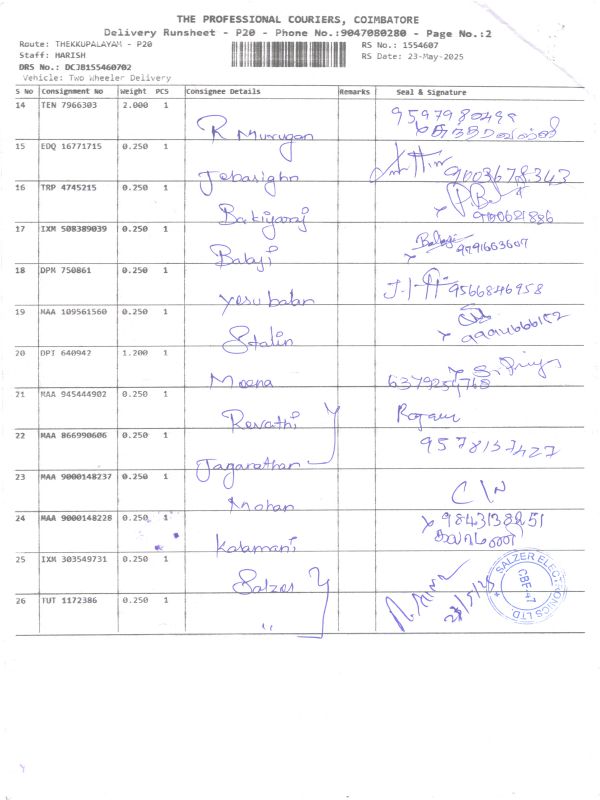 THE PROFESSIONAL COURIERS, COIMBATORE
Delivery Runsheet - P20 - Phone No.:9047080280 - Page No.:2
Route: THEKKUPALAYAM - P20
RS No.: 1554607
Staff: HARISH
RS Date: 23-May-2025
DRS No.: DCJB155460702
Vehicle: Two Wheeler Delivery
S No Consignment No Weight PCS Consignee Details Remarks Seal & Signature
14 TEN 7966303 2.000 1 R Murugan
15 EDQ 16771715 0.250 1 Jebasighn 9003678343
16 TRP 4745215 0.250 1 Bakiyaraj
17 IXM 508389039 0.250 1 Balaji Balaji 9791663607
18 DPM 750861 0.250 1 Yesu balan 9566846958
19 MAA 109561560 0.250 1 Stalin
20 DPI 640942 1.200 1 Meena
21 MAA 945444902 0.250 1 Revathi
22 MAA 866990606 0.250 1 Jaganathan 9578137427
23 MAA 9000148237 0.250 1 Mohan C/N
24 MAA 9000148228 0.250 1 Kalamani கலாமணி
25 IXM 303549731 0.250 1 Salzer
26 TUT 1172386 0.250 1 "
SALZER ELECTRONICS LTD.
CBE-47